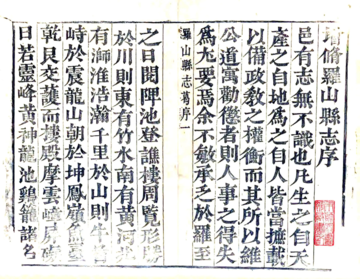 增修羅山縣志序
邑有志無不識也凡生之自天
產之自地為之自人皆當摭載
以備政教之權衡而其所以維
公道寓勸懲者則人事之得失
為尤要焉余不敏承乏於羅至
羅山縣志舊序 一
之日閱陴池登譙樓周覽形勝
於川則東有竹水南有黃
有浉淮浩瀚千里於山則牛
峙於震龍山朝於坤鳳
乾艮交護而樓殿摩雲
日若靈峰黃神龍池鷄籠諸名